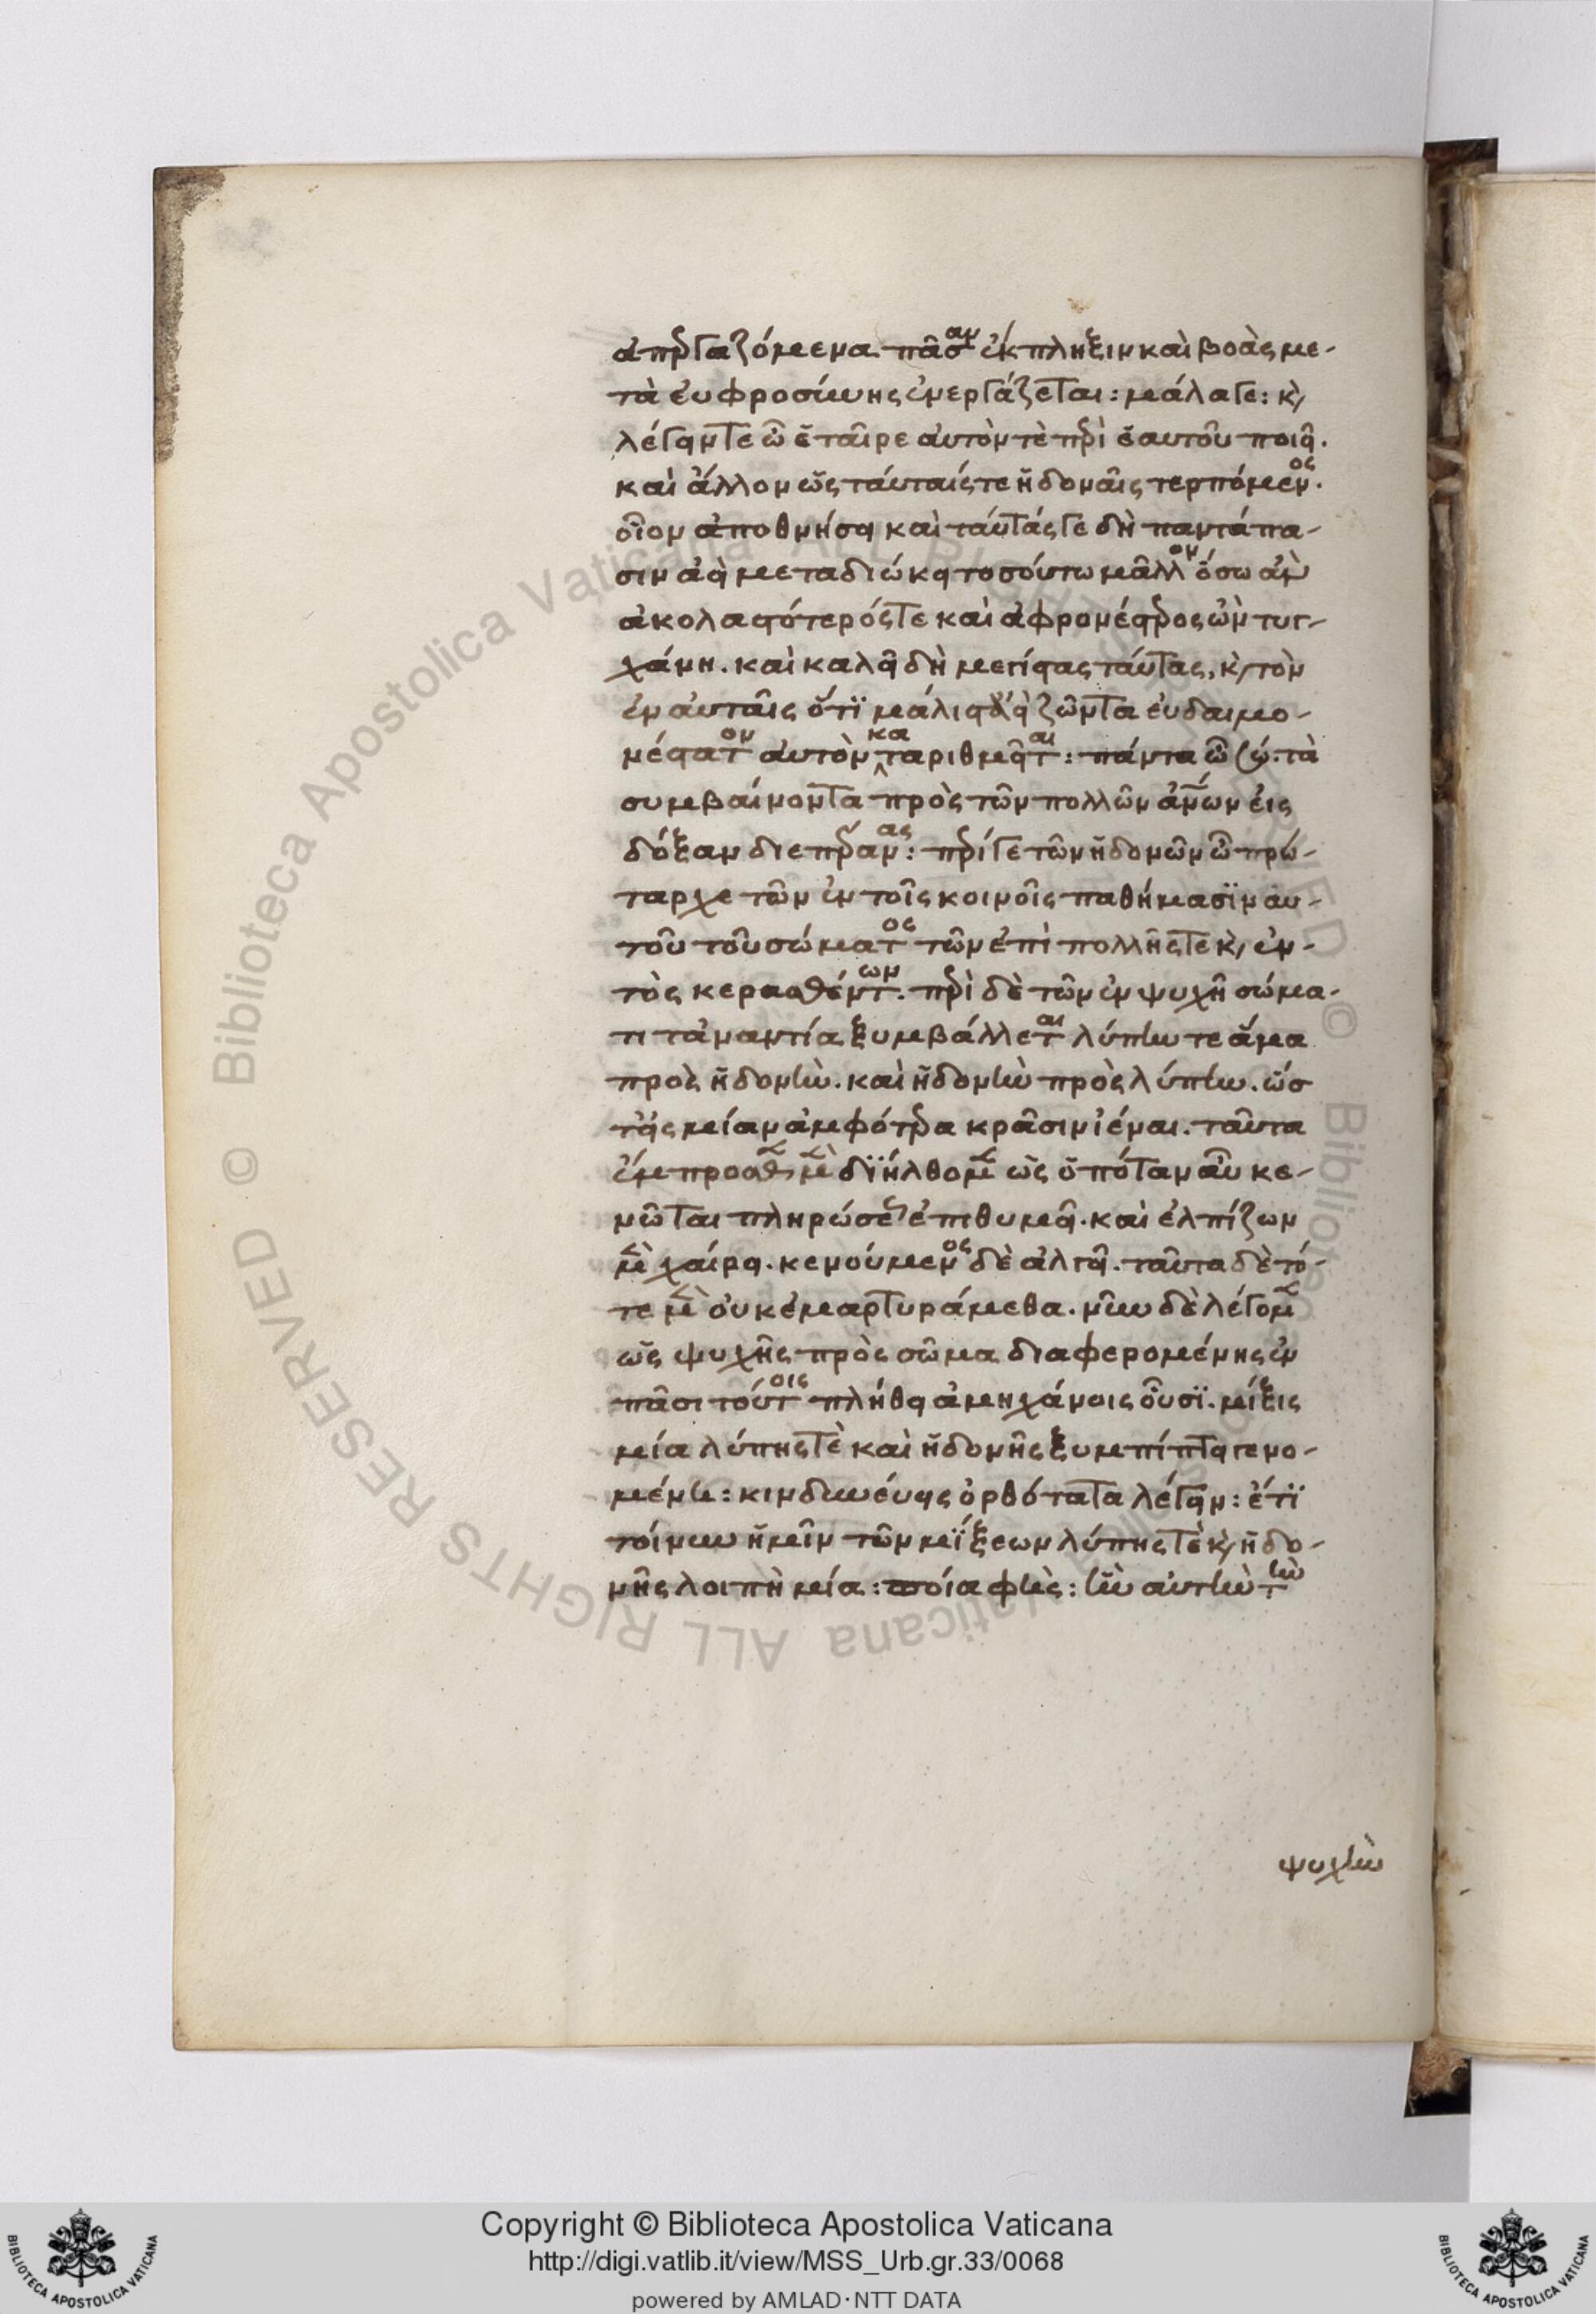 ἀπεργαζόμενα. πᾶσαν ἐκπληξιν καὶ βοὰς με-
τὰ ἐυφροσύνης ἐνεργάζεται: μάλαγε: κὶ
λέγειν τε ὦ ἑταῖρε ἀυτόν τὲ περὶ ἑαυτοῦ ποιεῖ.
καὶ ἄλλον ὡς τάυταίς τε ἡδοναῖς τερπόμενος.
οἷον ἀποθνήσει καὶ τάυτάς γε δὴ παντάπα-
σιν ἀεὶ μεταδιώκει τοσούτω μᾶλλον ὅσω ἂν
ἀκολαστότερός τε καὶ ἀφρονέστερος ὢν τυγ-
χάνη. καὶ καλεῖ δὴ μεγίστας τάυτας, κὶ τὸν
ἐν ἀυταῖς ὅτι μάλιστ' ἀεὶ ζῶντα ἐυδαιμο-
νέστατον ἀυτὸν καταριθμεῖται: πάντα ὦ σώ. τὰ
συμβαίνοντα πρὸς τῶν πολλῶν ἀνων ἐις
δόξαν διεπέρανας: περίγε τῶν ἡδονῶν ὦ πρώ-
ταρχε τῶν ἐν τοῖς κοινοῖς παθήμασιν ἀυ-
τοῦ τοῦ σώματος τῶν ἐπὶ πολλῆς τε κὶ ἐν-
τὸς κερασθέντων. περὶ δὲ τῶν ἐν ψυχῆ σώμα-
τι τἀναντία ξυμβάλλεται λύπην τε ἅμα
πρὸς ἡδονὴν. καὶ ἡδονὴν πρὸς λύπην. ὥσ
τ' εἰς μίαν ἀμφότερα κρᾶσιν ἰέναι. ταῦτα
ἔμπροσθεν μὲν διήλθομεν ὡς ὁπόταν ἂυ κε-
νῶται πληρώσεως ἐπιθυμεῖ. καὶ ἐλπίζων
μὲν χαίρει. κενούμενος δὲ ἀλγεῖ. ταῦτα δὲ τό-
τε μὲν ὀυκ ἐμαρτυράμεθα. νῦν δὲ λέγομεν
ὡς ψυχῆς πρὸς σῶμα διαφερομένης ἐν
πᾶσι τούτοις πλήθει ἀμηχάνοις οὖσι. μίξις
μία λύπης τὲ καὶ ἡδονῆς ξυμπίπτει γενο-
μένη: κινδυνέυεις ὀρθότατα λέγειν: ἔτι
τοίνυν ἡμῖν τῶν μίξεων λύπης τὲ κὶ ἡδο-
νῆς λοιπὴ μία: ποία φὴς: ἣν ἀυτὴν τὴν
ψυχὴν
Copyright © Biblioteca Apostolica Vaticana
http://digi.vatlib.it/view/MSS_Urb.gr.33/0068
powered by AMLAD·NTT DATA